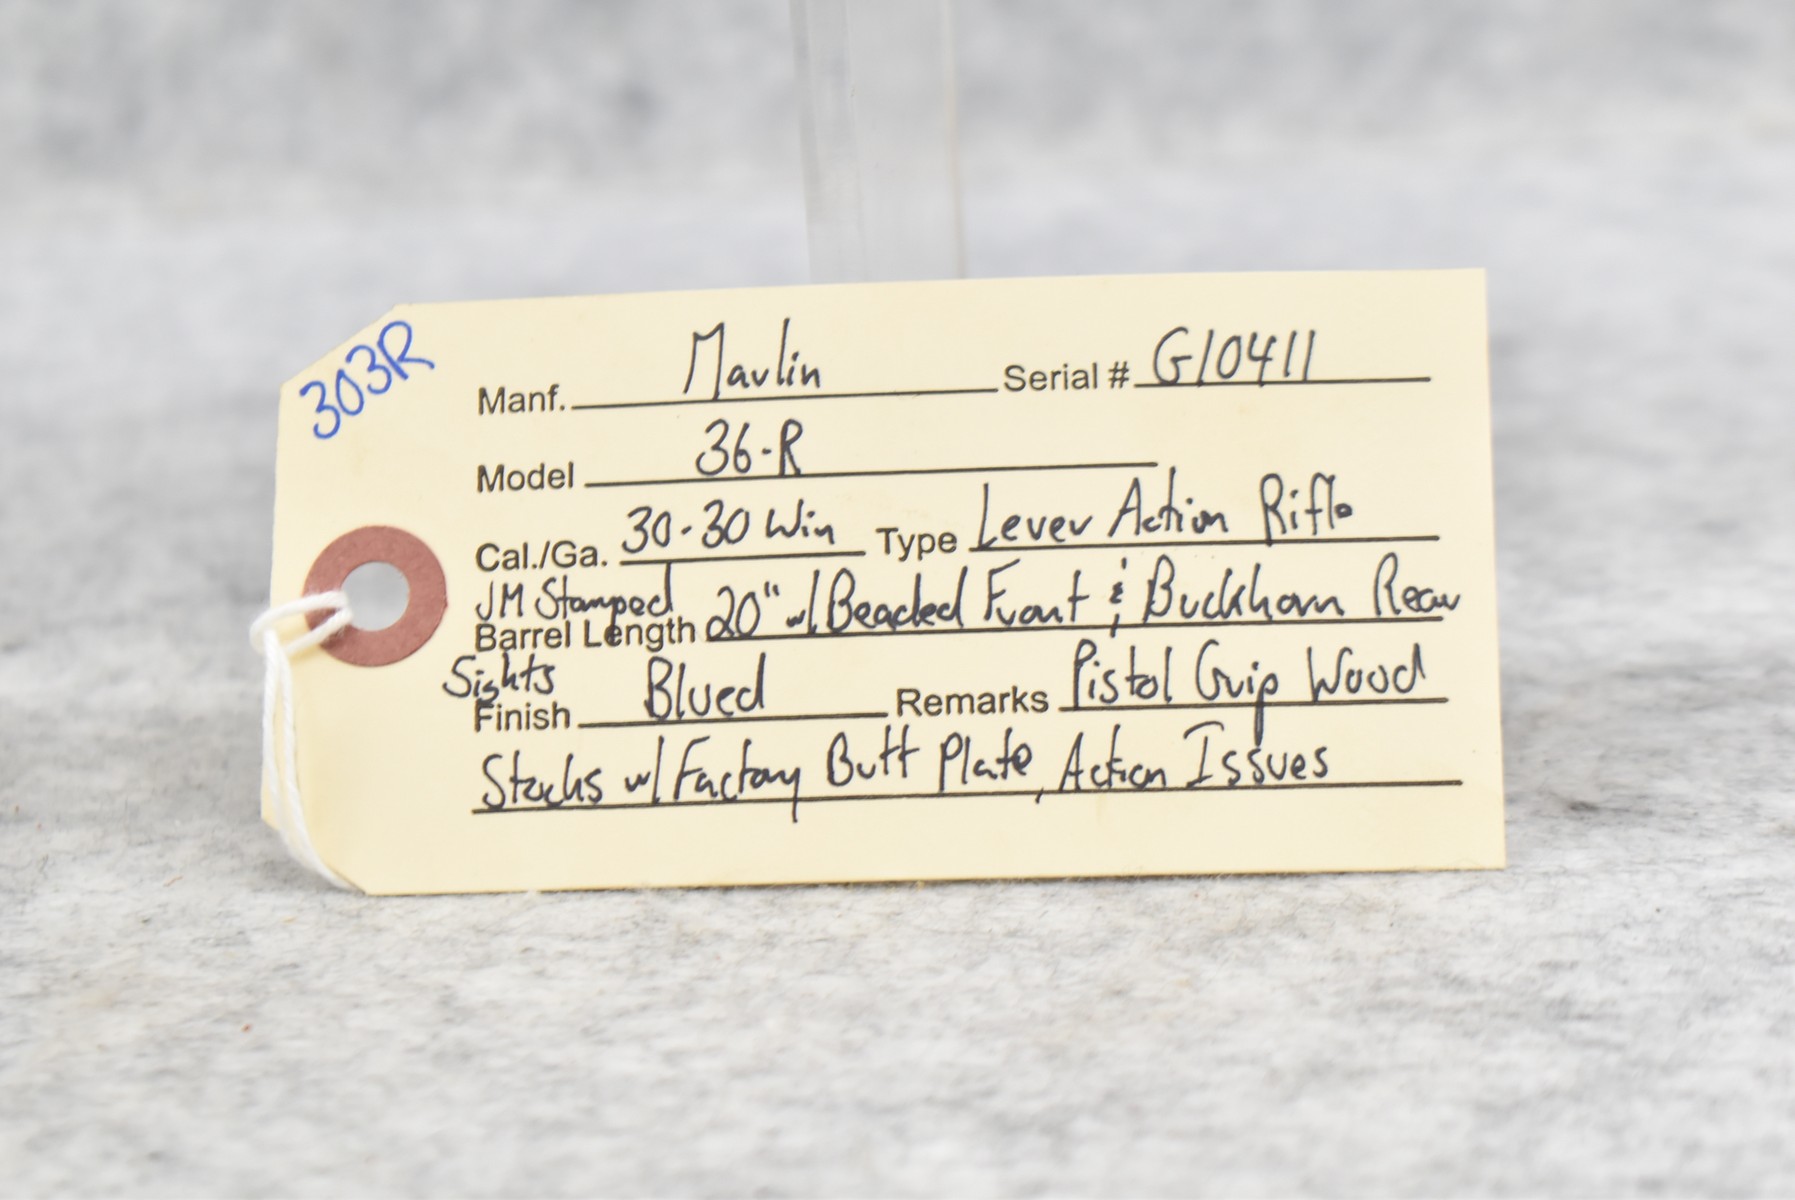 303R
Manf. Marlin Serial # G10411
Model 36-R
Cal./Ga. 30-30 Win Type Lever Action Rifle
JM Stamped
Barrel Length 20" w/ Beaded Front & Buckhorn Rear
Sights
Finish Blued Remarks Pistol Grip Wood
Stocks w/ Factory Butt Plate, Action Issues